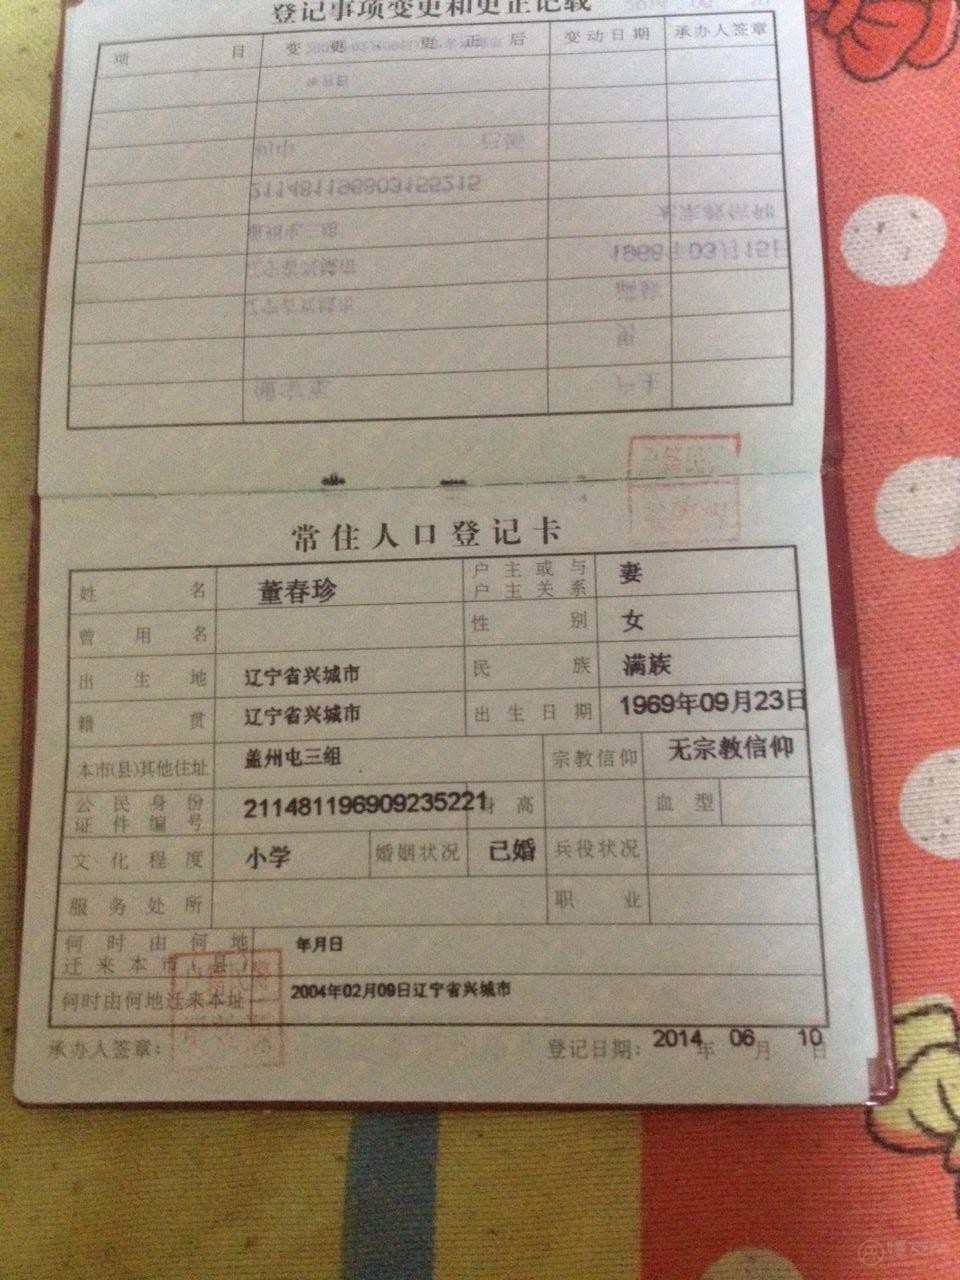 登记事项变更和更正记载
项 目 变 更 更 正 后 变动日期 承办人签章
常住人口登记卡
姓 名 董春珍 户主或与户主关系 妻
曾 用 名 性 别 女
出 生 地 辽宁省兴城市 民 族 满族
籍 贯 辽宁省兴城市 出生日期 1969年09月23日
本市(县)其他住址 盖州屯三组 宗教信仰 无宗教信仰
公民身份证件编号 211481196909235221 身 高 血 型
文化程度 小学 婚姻状况 已婚 兵役状况
服务处所 职 业
何时由何地迁来本市(县) 年月日
何时由何地迁来本址 2004年02月09日辽宁省兴城市
承办人签章: 登记日期: 2014年 06月 10日